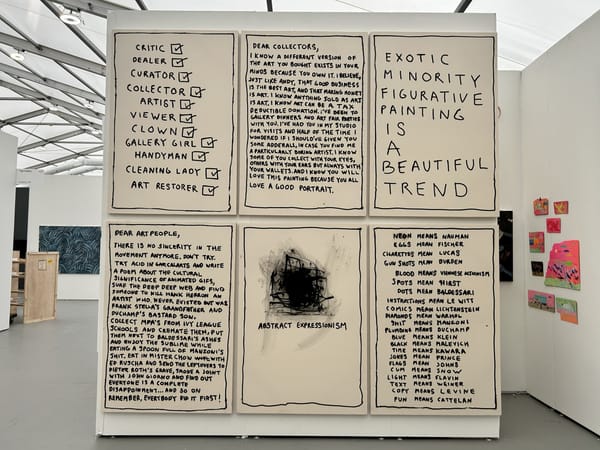 CRITIC ☑
DEALER ☑
CURATOR ☑
COLLECTOR ☑
ARTIST ☑
VIEWER ☑
CLOWN ☑
GALLERY GIRL ☑
HANDYMAN ☑
CLEANING LADY ☑
ART RESTORER ☑
DEAR COLLECTORS,
I KNOW A DIFFERENT VERSION OF
THE ART YOU BOUGHT EXISTS IN YOUR
MINDS BECAUSE YOU OWN IT. I BELIEVE,
JUST LIKE ANDY, THAT GOOD BUSINESS
IS THE BEST ART, AND THAT MAKING MONEY
IS ART. I KNOW ANYTHING SOLD AS ART
IS ART, I KNOW ART CAN BE A TAX
DEDUCTIBLE DONATION. I'VE BEEN TO
GALLERY DINNERS AND ART FAIR PARTIES
WITH YOU. I'VE HAD YOU IN MY STUDIO
FOR VISITS AND HALF OF THE TIME I
WONDERED IF I SHOULD'VE GIVEN YOU
SOME ADDERALL, IN CASE YOU FIND ME
A PARTICULARLY BORING ARTIST. I KNOW
SOME OF YOU COLLECT WITH YOUR EYES,
OTHERS WITH YOUR EARS BUT ALWAYS WITH
YOUR WALLETS. AND I KNOW YOU WILL
LOVE THIS PAINTING BECAUSE YOU ALL
LOVE A GOOD PORTRAIT.
EXOTIC
MINORITY
FIGURATIVE
PAINTING
IS
A
BEAUTIFUL
TREND
DEAR ART PEOPLE,
THERE IS NO SINCERITY IN THE
MOVEMENT ANYMORE, DON'T TRY.
TRY ACID IN GORCALANTE AND WRITE
A POEM ABOUT THE CULTURAL
SIGNIFICANCE OF ANIMATED GIFS,
SURF THE DEEP DEEP WEB AND FIND
SOMEONE TO KILL HANK HERRON AN
ARTIST WHO NEVER EXISTED BUT WAS
FRANK STELLA'S GRANDFATHER AND
DUCHAMP'S BASTARD SON.
COLLECT MFA'S FROM IVY LEAGUE
SCHOOLS AND CREMATE THEM, PUT
THEM NEXT TO BALDESSARI'S ASHES
AND ENJOY THE SUBLIME WHILE
EATING A SPOON FULL OF MANZONI'S
SHIT. EAT IN MISTER CHOW WITH
ED RUSCHA AND SEND THE LEFTOVERS TO
DIETER ROTH'S GRAVE, SHARE A JOINT
WITH JOHN GIORNO AND FIND OUT
EVERYONE IS A COMPLETE
DISAPPOINTMENT... AND SO ON
REMEMBER, EVERYBODY DID IT FIRST!
ABSTRACT EXPRESSIONISM
NEON MEANS NAUMAN
EGGS MEAN FISCHER
CIGARETTES MEAN LUCAS
GUN SHOTS MEAN BURDEN
BLOOD MEANS VIENNESE ACTIONISM
SPOTS MEAN HIRST
DOTS MEAN BALDESSARI
INSTRUCTIONS MEAN LE WITT
COMICS MEAN LICHTENSTEIN
DIAMONDS MEAN WARHOL
SHIT MEANS MANZONI
PLUMBING MEANS DUCHAMP
BLUE MEANS KLEIN
BLACK MEANS MALEVICH
TIME MEANS KAWARA
JOKES MEAN PRINCE
FLAGS MEAN JOHNS
CUM MEANS SNOW
LIGHT MEANS FLAVIN
TEXT MEANS WEINER
COPY MEANS LEVINE
FUN MEANS CATTELAN